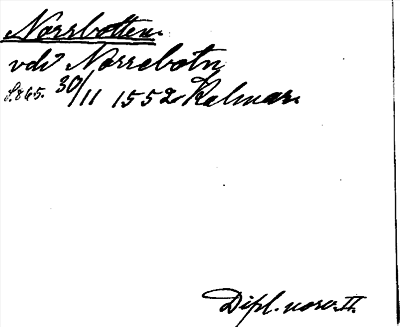 Norrbotten.
vdi Norrebotn
s.865. 30/11 1552 Kalmar.
Dipl. norv. II.